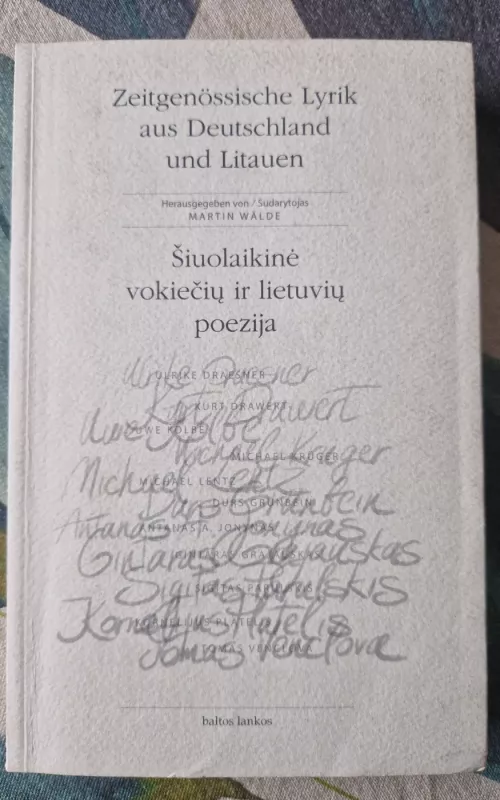 Zeitgenössische Lyrik
aus Deutschland
und Litauen
Herausgegeben von / Sudarytojas
MARTIN WÄLDE
Šiuolaikinė
vokiečių ir lietuvių
poezija
Ulrike Draesner
ULRIKE DRAESNER
Kurt Drawert
KURT DRAWERT
Uwe Kolbe
UWE KOLBE
Michael Krüger
MICHAEL KRÜGER
Michael Lentz
MICHAEL LENTZ
Durs Grünbein
DURS GRÜNBEIN
Antanas A. Jonynas
ANTANAS A. JONYNAS
Gintaras Grajauskas
GINTARAS GRAJAUSKAS
Sigitas Parulskis
SIGITAS PARULSKIS
Kornelijus Platelis
KORNELIJUS PLATELIS
Tomas Venclova
TOMAS VENCLOVA
baltos lankos